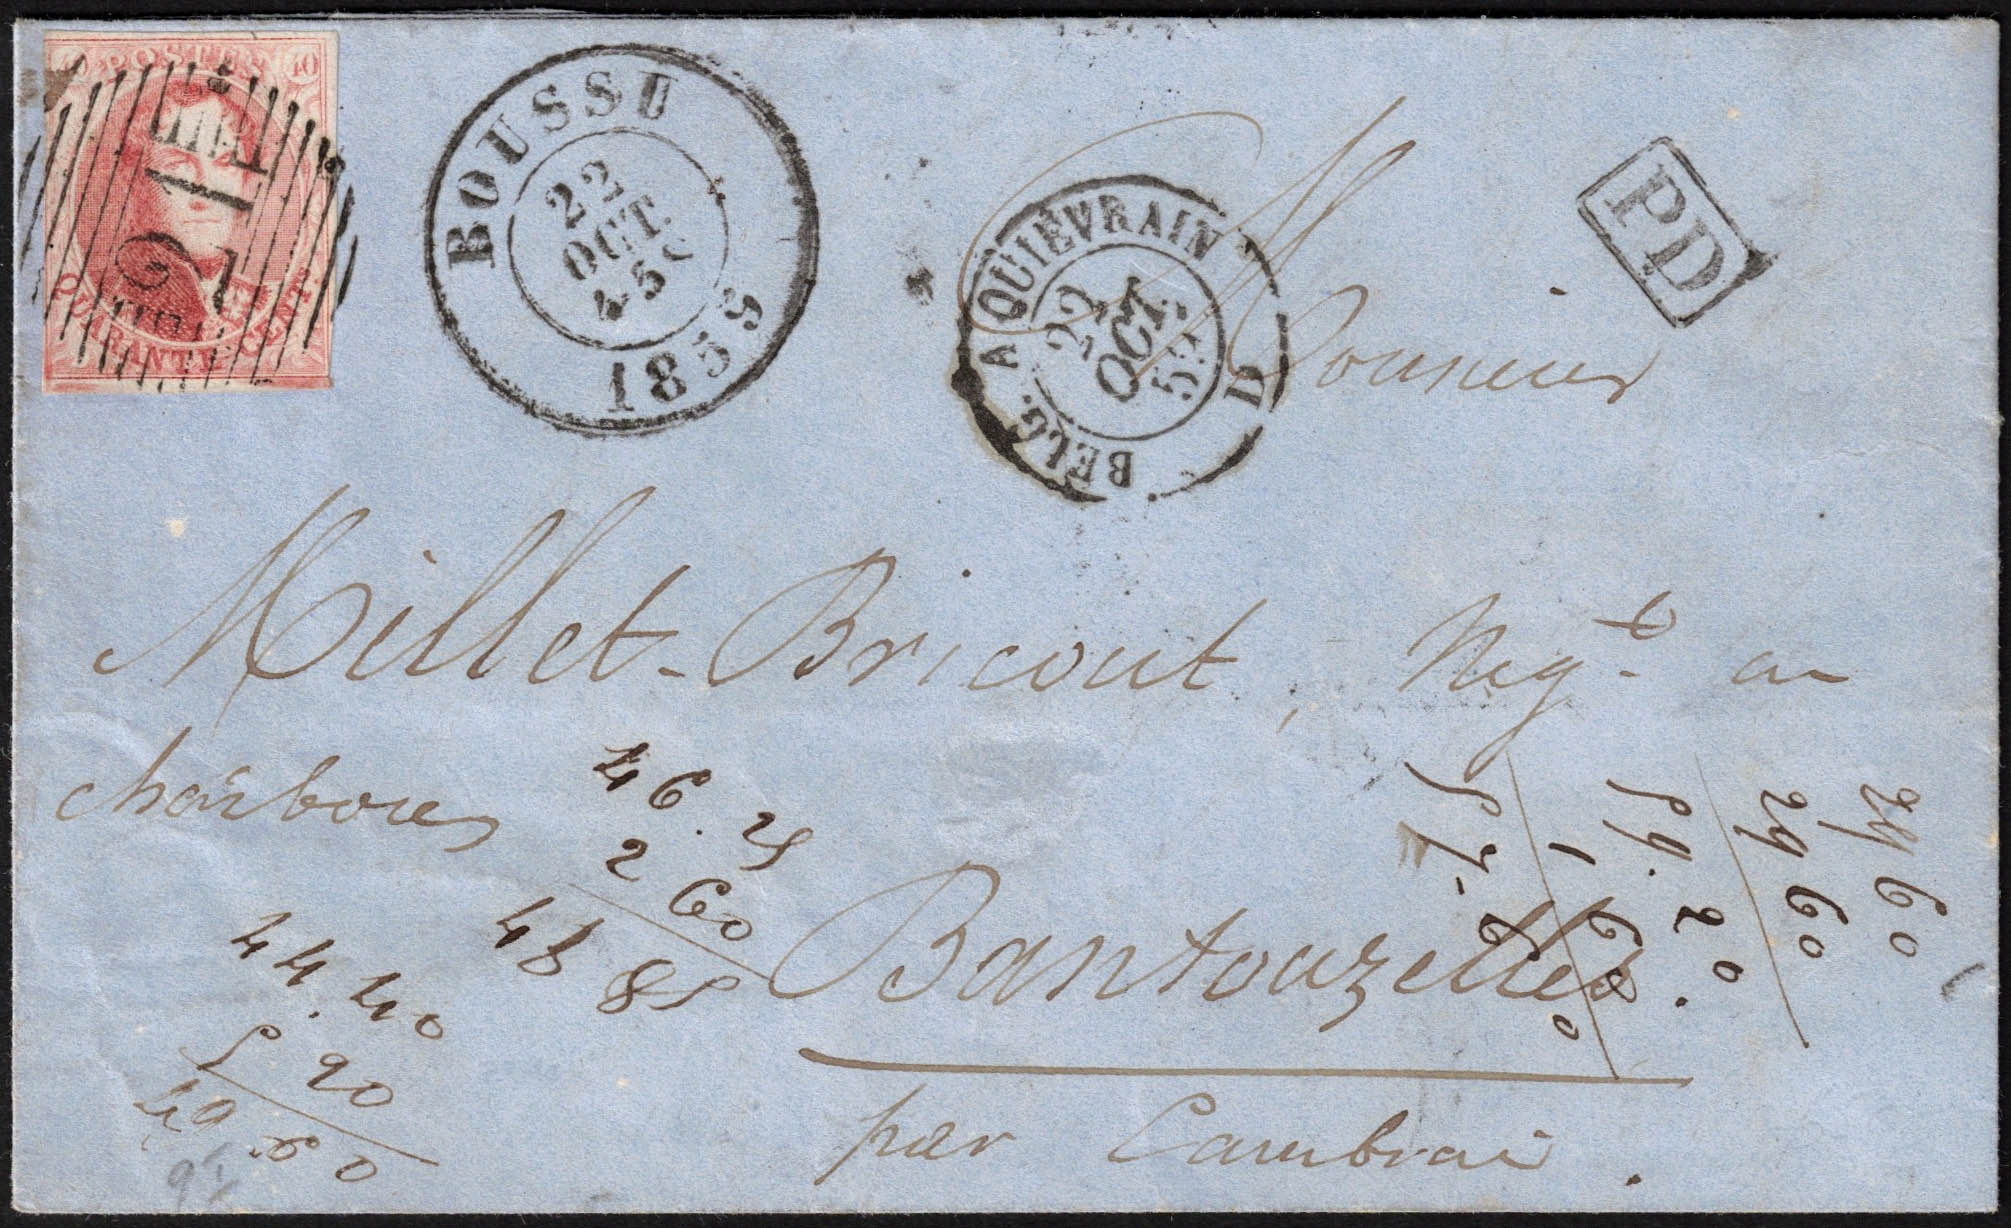 POSTES
40 40
QUARANTE CENT.
24
BOUSSU
22
OCT.
4-5
1859
BELG. A QUIÉVRAIN
22
OCT.
59
D
PD
Monsieur
Millet-Bricout, Negt. en
charbons
Bantouzelles.
par Cambrai.
46.25
2 60
48 85
44.40
5 20
49 60
29 60
29 60
59.20
1 60
57-60